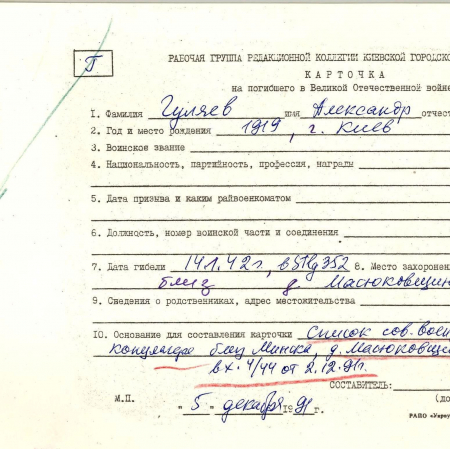 Г
РАБОЧАЯ ГРУППА РЕДАКЦИОННОЙ КОЛЛЕГИИ КИЕВСКОЙ ГОРОДСКО
КАРТОЧКА
на погибшего в Великой Отечественной войне
1. Фамилия Гуляев имя Александр отчест
2. Год и место рождения 1919, г. Киев
3. Воинское звание
4. Национальность, партийность, профессия, награды
5. Дата призыва и каким райвоенкоматом
6. Должность, номер воинской части и соединения
7. Дата гибели 14.1.42г., в 8. Место захоронен
близ д Масюковщин
9. Сведения о родственниках, адрес местожительства
10. Основание для составления карточки Список сов. воен
концлагере близ Минска, д. Масюковщи
вх. 4/44 от 2.12.91г.
СОСТАВИТЕЛЬ:
М.П. "5" декабря 1991г. (до
РАПО «Укрву